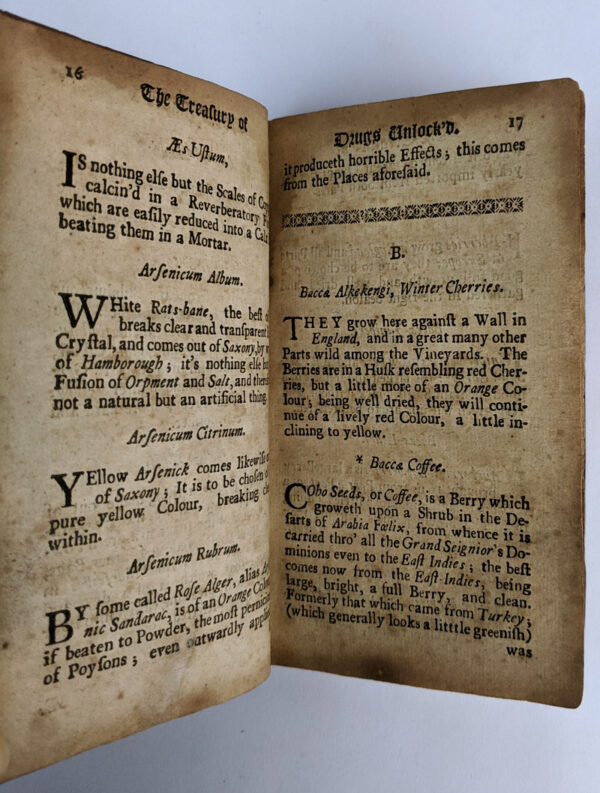 16
The Treaſury of
Æs Uſtum,
IS nothing elſe but the Scales of
calcin'd in a Reverberatory
which are eaſily reduced into a
beating them in a Mortar.
Arſenicum Album.
WHite Rats-bane, the beſt
breaks clear and tranſparent
Cryſtal, and comes out of Saxony, by
of Hamborough; it's nothing elſe
Fuſion of Orpment and Salt, and
not a natural but an artificial thing.
Arſenicum Citrinum.
YEllow Arſenick comes likewiſe
of Saxony; It is to be choſen
pure yellow Colour, breaking
within.
Arſenicum Rubrum.
BY ſome called Roſe Alger, alias
nic Sandarac, is of an Orange
if beaten to Powder, the moſt
of Poyſons; even outwardly
17
Drugs Unlock'd.
it produceth horrible Effects; this comes
from the Places aforeſaid.
B.
Bacca Alkekengi, Winter Cherries.
THEY grow here againſt a Wall in
England, and in a great many other
Parts wild among the Vineyards. The
Berries are in a Huſk reſembling red Cher-
ries, but a little more of an Orange Co-
lour; being well dried, they will conti-
nue of a lively red Colour, a little in-
clining to yellow.
* Bacca Coffee.
COho Seeds, or Coffee, is a Berry which
groweth upon a Shrub in the De-
ſarts of Arabia Fœlix, from whence it is
carried thro' all the Grand Seignior's Do-
minions even to the Eaſt Indies; the beſt
comes now from the Eaſt-Indies, being
large, bright, a full Berry, and clean.
Formerly that which came from Turkey;
(which generally looks a litttle greeniſh)
was